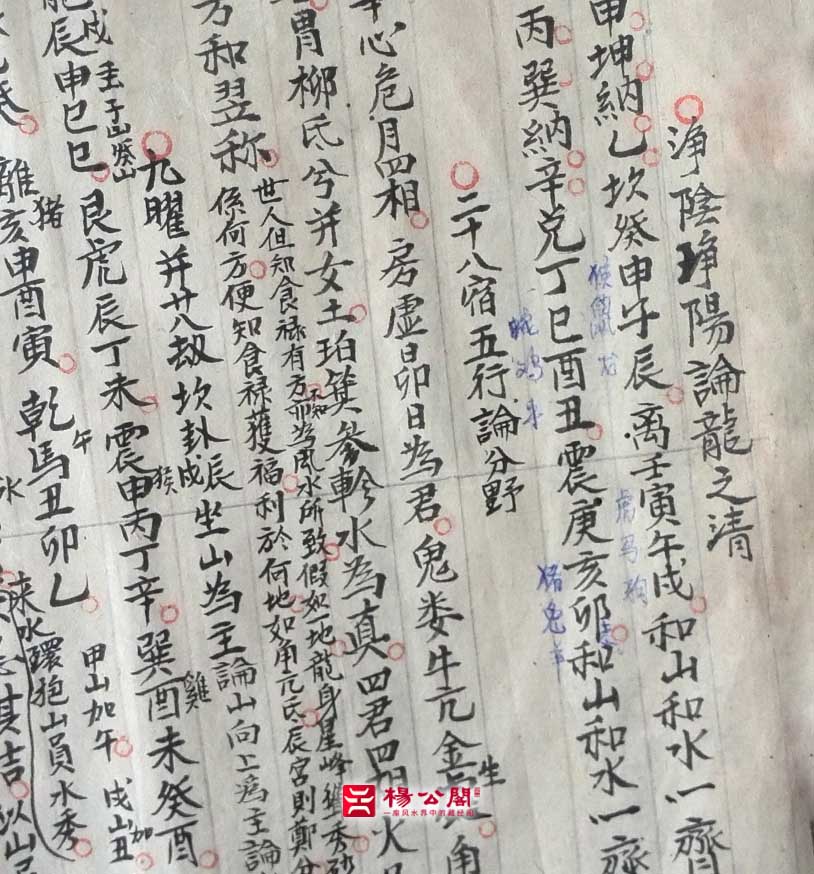 淨陰琤陽論龍之清
申坤納乚坎癸申子辰离壬寅午戌和山和水一齊
猴鼠龙
虎马狗
丙巽納辛兌丁巳酉丑震庚亥卯和山和水一齊
蛇鸡牛
猪兔羊
二十八宿五行論分野
心危月四相房虛昴卯日為君鬼娄牛亢金
生
角
胃柳氐兮并女土珀箕參軫水為真四君四相火
世人但知食禄有方不知為風水所致假如一地龍身星峰
係何方便知食禄獲福利於何地如角亢氐辰宮則鄭分
方和翌称
九曜并廿八刼坎卦辰戌坐山為主論山向上為主論
猴
雞
辰申巳巳艮虎辰丁未震申丙丁辛巽酉未癸酉
戌壬子山癸山
猪
午
離亥申酉寅乾馬丑卯乚
甲山加午戌山加丑
来水環抱山員水秀
其吉以山
楊公閣
一座风水界中的藏经阁